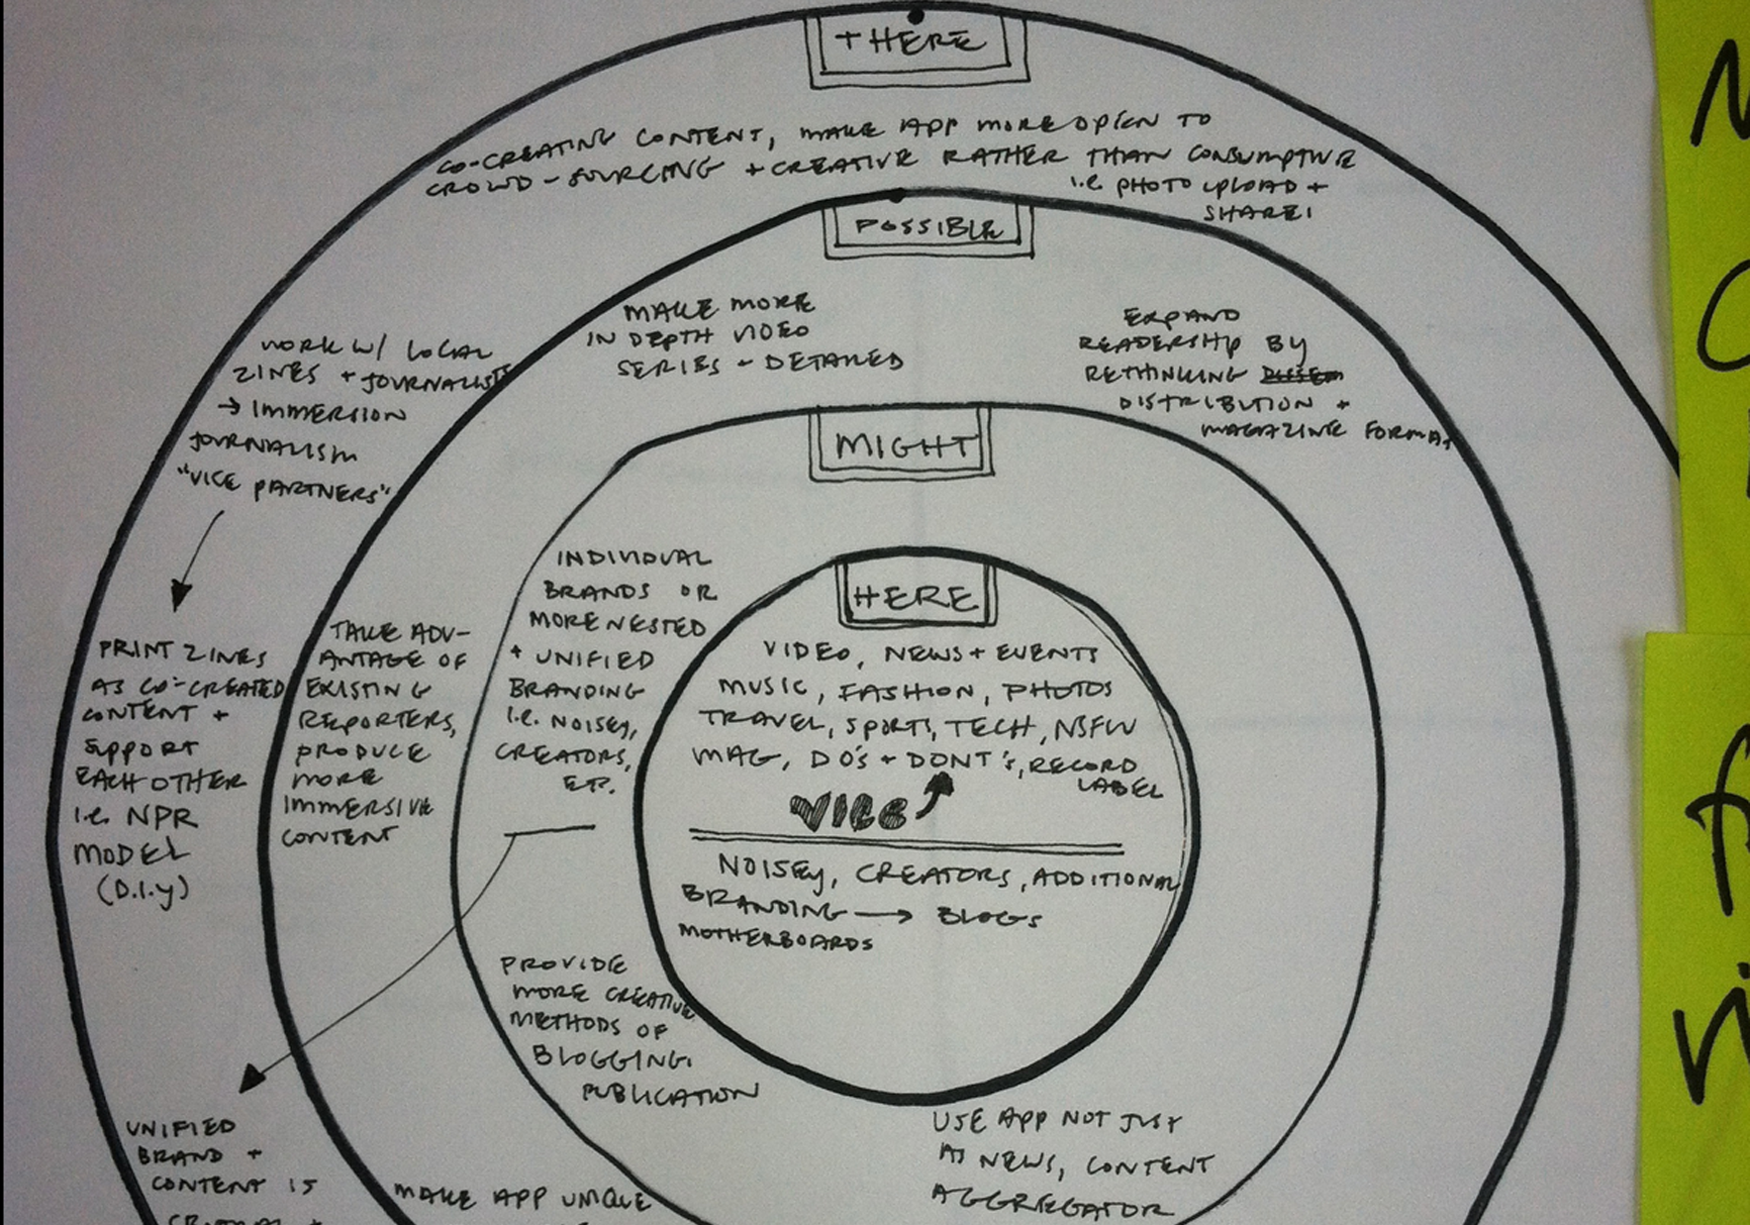 THERE
CO-CREATING CONTENT, MAKE APP MORE OPEN TO
CROWD-SOURCING + CREATIVE RATHER THAN CONSUMPTIVE
i.e. PHOTO UPLOAD +
SHARE!
POSSIBLE
MAKE MORE
IN DEPTH VIDEO
SERIES - DETAILED
EXPAND
READERSHIP BY
RETHINKING
DISTRIBUTION +
MAGAZINE FORMAT
WORK W/ LOCAL
ZINES + JOURNALISTS
→ IMMERSION
JOURNALISM
"VICE PARTNERS"
PRINT ZINES
AS CO-CREATED
CONTENT +
SUPPORT
EACH OTHER
i.e. NPR
MODEL
(D.I.Y)
TAKE ADV-
ANTAGE OF
EXISTING
REPORTERS,
PRODUCE
MORE
IMMERSIVE
CONTENT
MIGHT
INDIVIDUAL
BRANDS OR
MORE NESTED
+ UNIFIED
BRANDING
i.e. NOISEY,
CREATORS,
HERE
VIDEO, NEWS + EVENTS
MUSIC, FASHION, PHOTOS
TRAVEL, SPORTS, TECH, NSFW
MAG, DO'S + DONT'S, RECORD
LABEL
VICE
NOISEY, CREATORS, ADDITIONAL
BRANDING → BLOGS
MOTHERBOARDS
PROVIDE
MORE CREATIVE
METHODS OF
BLOGGING,
PUBLICATION
USE APP NOT JUST
AS NEWS, CONTENT
AGGREGATOR
UNIFIED
BRAND +
CONTENT IS
MAKE APP UNIQUE